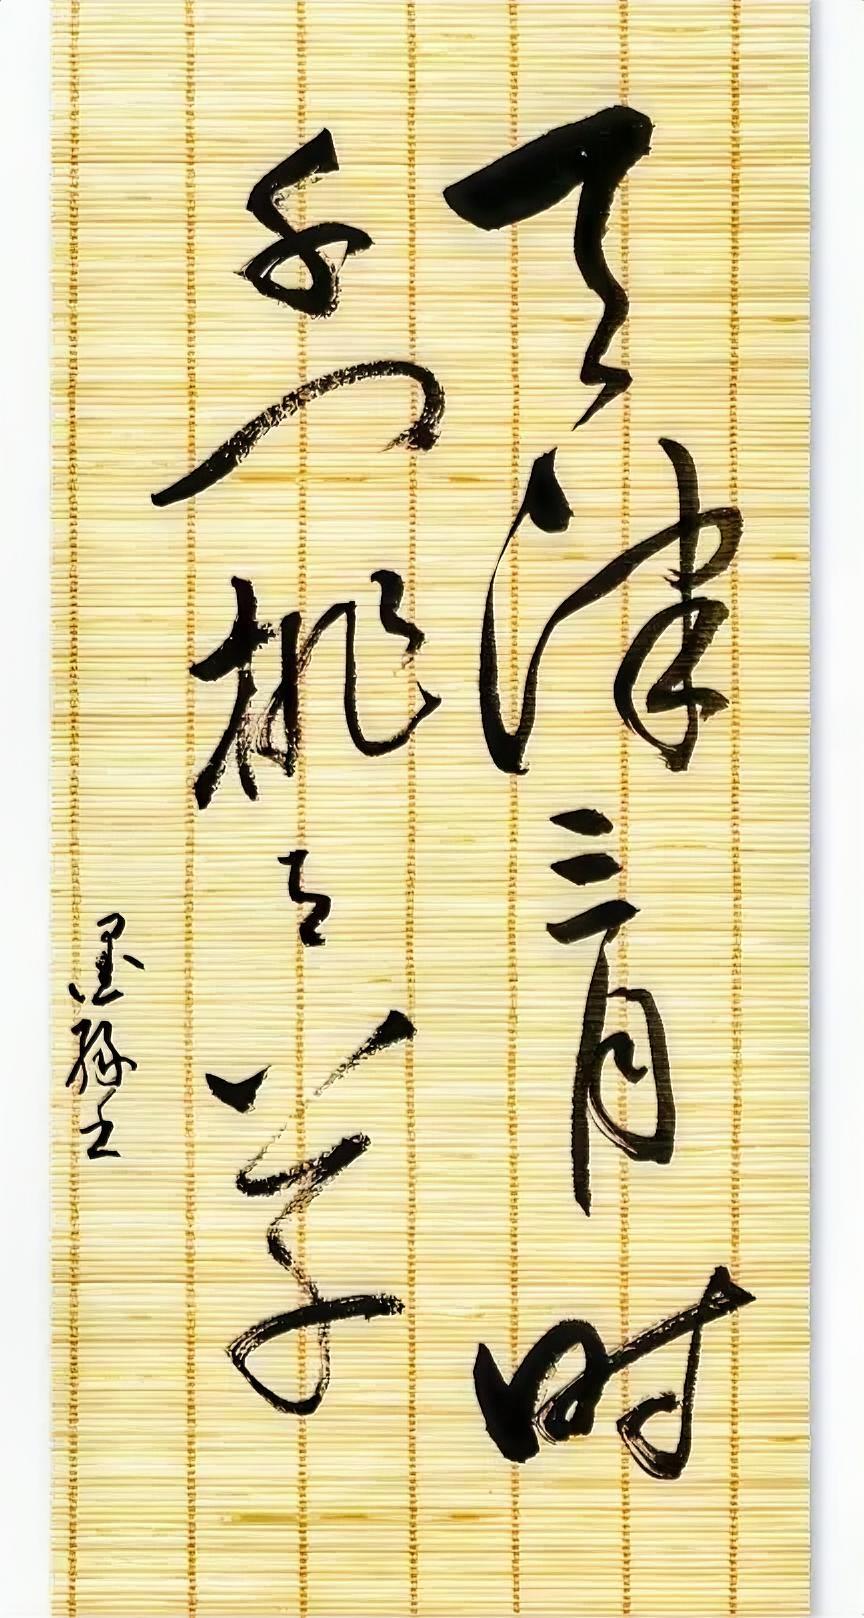 天津三月时
千门桃与李
墨缘